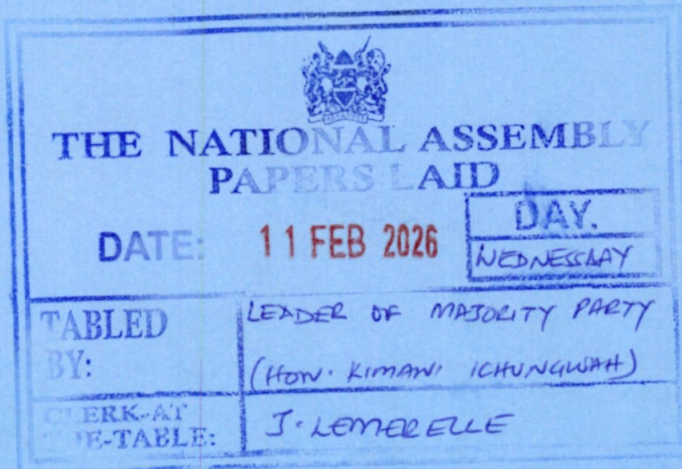 THE NATIONAL ASSEMBLY
PAPERS LAID
DATE: 11 FEB 2026
DAY.
WEDNESDAY
TABLED BY:
LEADER OF MAJORITY PARTY
(HON. KIMANI ICHUNGWAH)
CLERK-AT THE-TABLE:
J. LEMERELLE